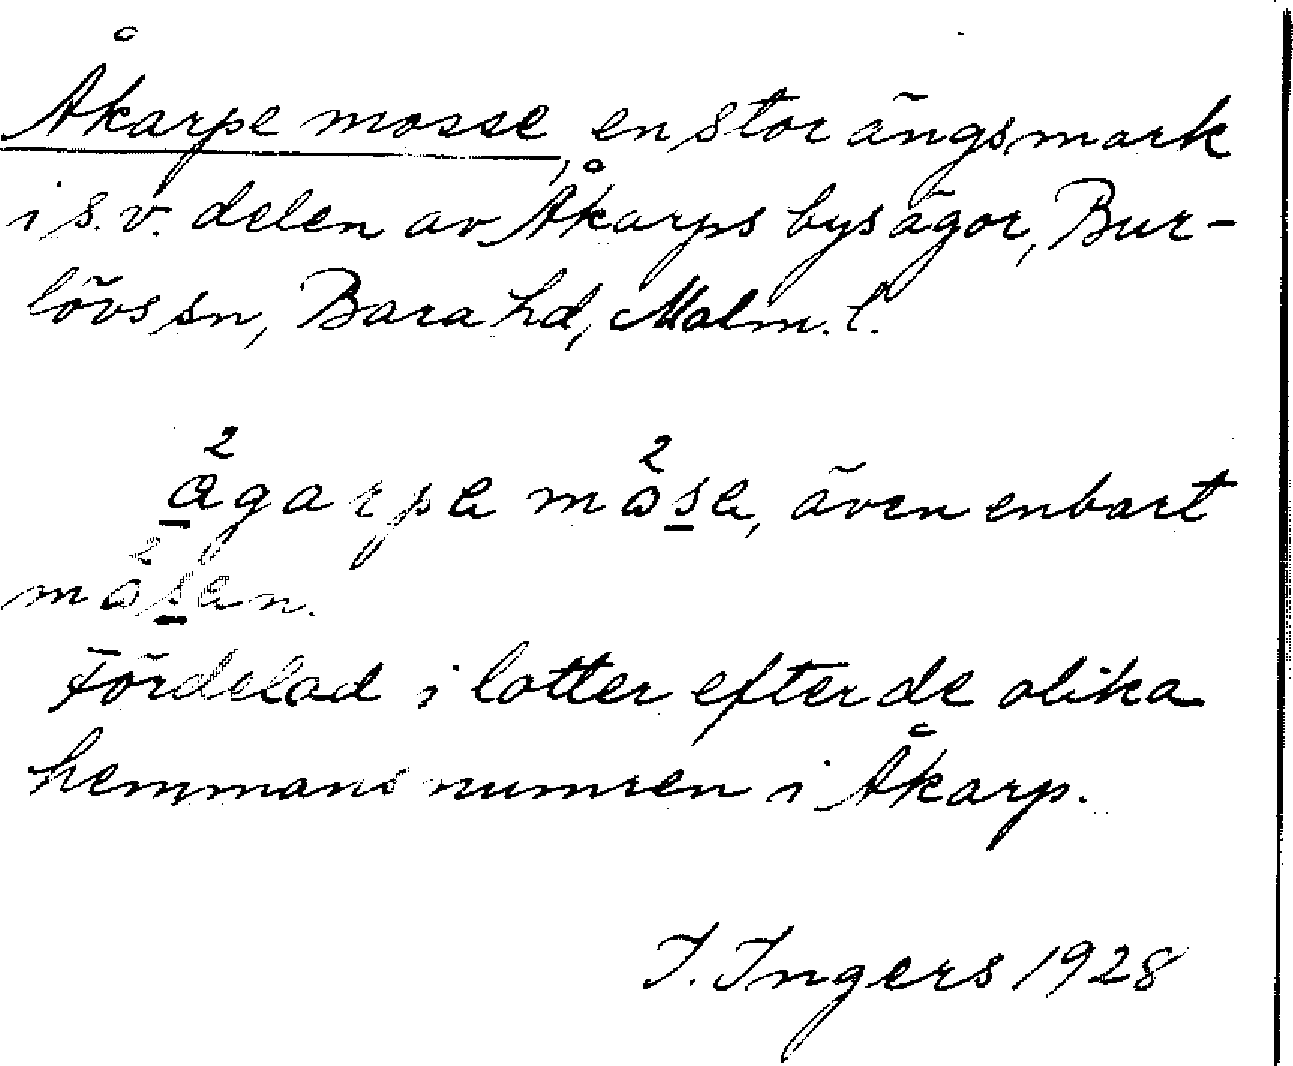 Åkarpe mosse, en stor ängsmark
i s.v. delen av Åkarps bys ägor, Bur-
lövs sn, Bara hd, Malm. l.
ågarpa måsa, även enbart
måsan.
Fördelad i lotter efter de olika
hemmansnumren i Åkarp.
I. Ingers 1928